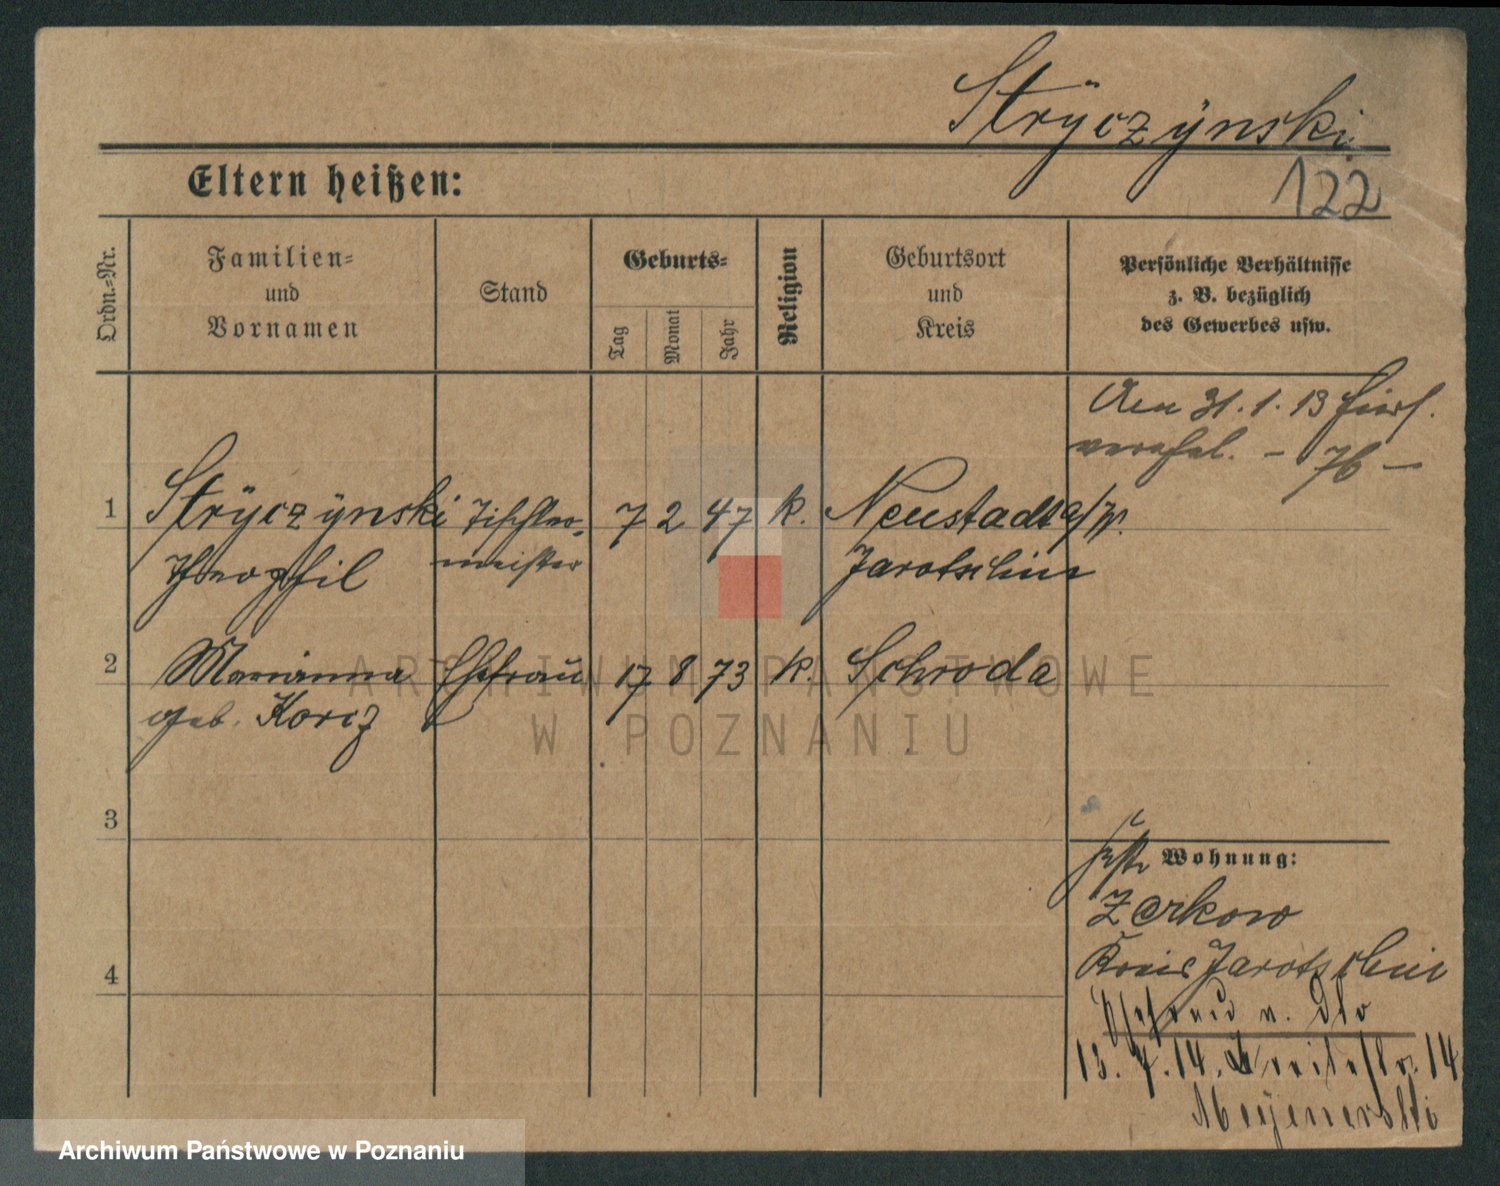 Stryczynski
122
Eltern heißen:
Ordn.-Nr.
Familien-
und
Vornamen
Stand
Geburts-
Tag
Monat
Jahr
Religion
Geburtsort
und
Kreis
Persönliche Verhältnisse
z. B. bezüglich
des Gewerbes usw.
31.1.13
- 76 -
1 Stryczynski Tischler- 7 2 47 k. Neustadt a/W.
Theophil meister Jarotschin
2 Marianna Ehefrau 17 8 73 k. Schroda
geb. Korcz
3
Wohnung:
Zerkow
Kreis Jarotschin
4
Ehefrau v. dto
13.7.14. Breitestr. 14
ARCHIWUM PAŃSTWOWE
W POZNANIU
Archiwum Państwowe w Poznaniu